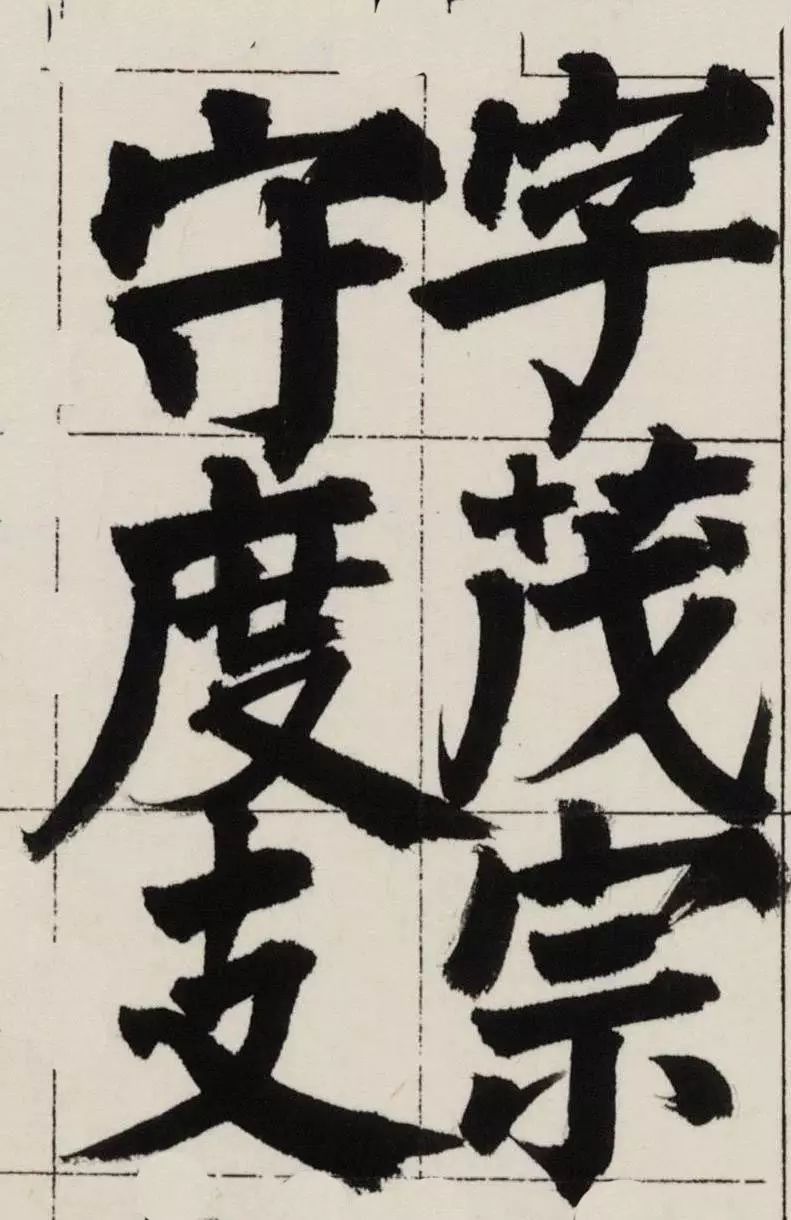 字茂宗
守度支